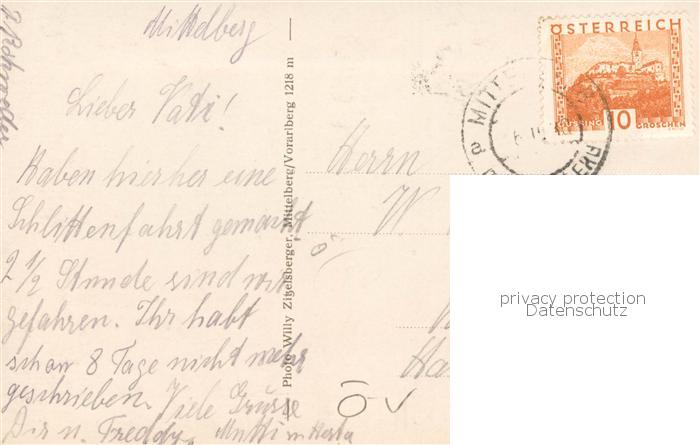 Mittelberg
Lieber Vati!
Haben hierher eine
Schlittenfahrt gemacht
2 1/2 Stunde sind wir
gefahren. Ihr habt
schon 8 Tage nicht mehr
geschrieben. Viele Grüsse
Dir u. Freddy, Mutti
Photo Willy Zitzelsberger, Mittelberg/Vorarlberg 1218 m
Herrn
W
Ha
ÖSTERREICH
GÜSSING 10 GROSCHEN
MITTE
privacy protection
Datenschutz